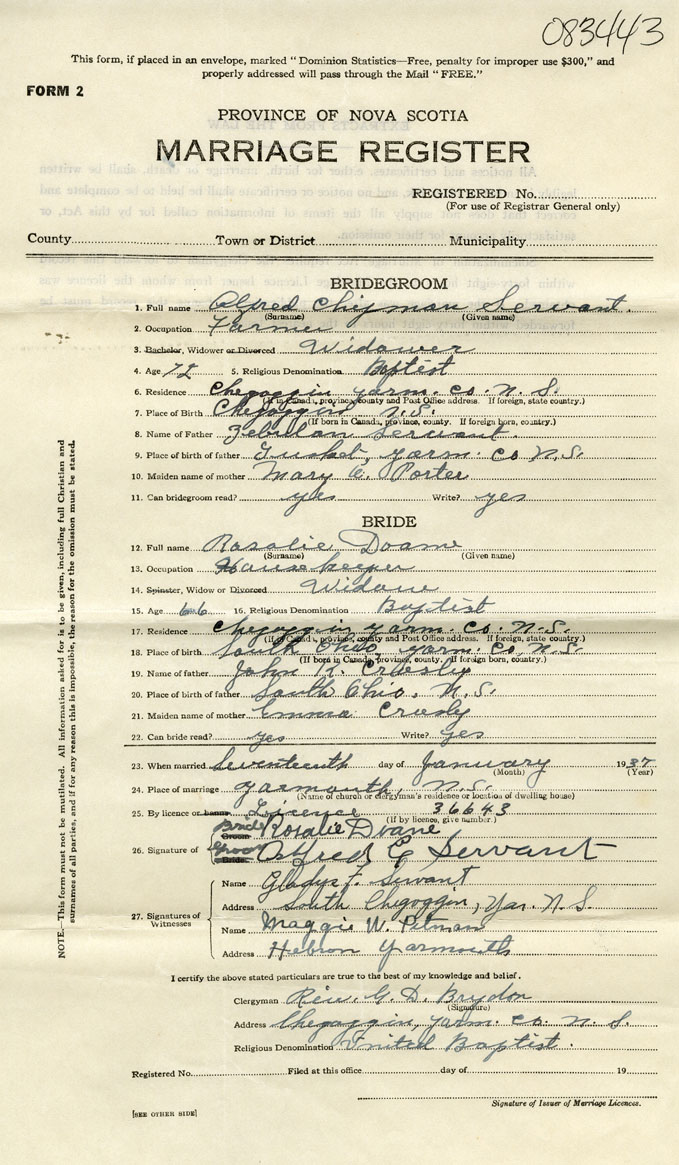 083443
This form, if placed in an envelope, marked "Dominion Statistics—Free, penalty for improper use $300," and
properly addressed will pass through the Mail "FREE."
FORM 2
PROVINCE OF NOVA SCOTIA
MARRIAGE REGISTER
REGISTERED No.
(For use of Registrar General only)
County Town or District Municipality
BRIDEGROOM
1. Full name Alfred Chipman Servant.
(Surname) (Given name)
2. Occupation Farmer
3. Bachelor, Widower or Divorced Widower
4. Age 72 5. Religious Denomination Baptist
6. Residence Chegoggin yarm. Co. N. S.
(If in Canada, province, county and Post Office address. If foreign, state country.)
7. Place of Birth Chegoggin N.S.
(If born in Canada, province, county. If foreign born, country.)
8. Name of Father Servant.
9. Place of birth of father Tusket, yarm. Co N.S.
10. Maiden name of mother Mary E. Porter
11. Can bridegroom read? yes Write? yes
BRIDE
12. Full name Rosalie Doane
(Surname) (Given name)
13. Occupation Housekeeper
14. Spinster, Widow or Divorced Widow
15. Age 66 16. Religious Denomination Baptist
17. Residence Chegoggin yarm. Co. N.S.
(If in Canada, province, county and Post Office address. If foreign, state country.)
18. Place of birth South Ohio, yarm. Co. N.S.
(If born in Canada, province, county. If foreign born, country.)
19. Name of father John K. Crosby
20. Place of birth of father South Ohio, N.S.
21. Maiden name of mother Emma Crosby
22. Can bride read? yes Write? yes
23. When married Seventeenth day of January 1937
(Month) (Year)
24. Place of marriage Yarmouth, N.S.
(Name of church or clergyman's residence or location of dwelling house)
25. By licence or banns Licence 36643
(If by licence, give number.)
Bride Rosalie Doane
Groom
26. Signature of
Groom Alfred C Servant
Bride
27. Signatures of Witnesses
Name Gladys F. Servant
Address South Chegoggin, Yar. N.S.
Name Maggie W. Pitman
Address Hebron Yarmouth
I certify the above stated particulars are true to the best of my knowledge and belief.
Clergyman Rev. G. D. Brydon
(Signature)
Address Chegoggin, yarm. co. n. s.
Religious Denomination United Baptist.
Registered No. Filed at this office day of 19
Signature of Issuer of Marriage Licences.
[SEE OTHER SIDE]
NOTE.—This form must not be mutilated. All information asked for is to be given, including full Christian and
surnames of all parties, and if for any reason this is impossible, the reason for the omission must be stated.